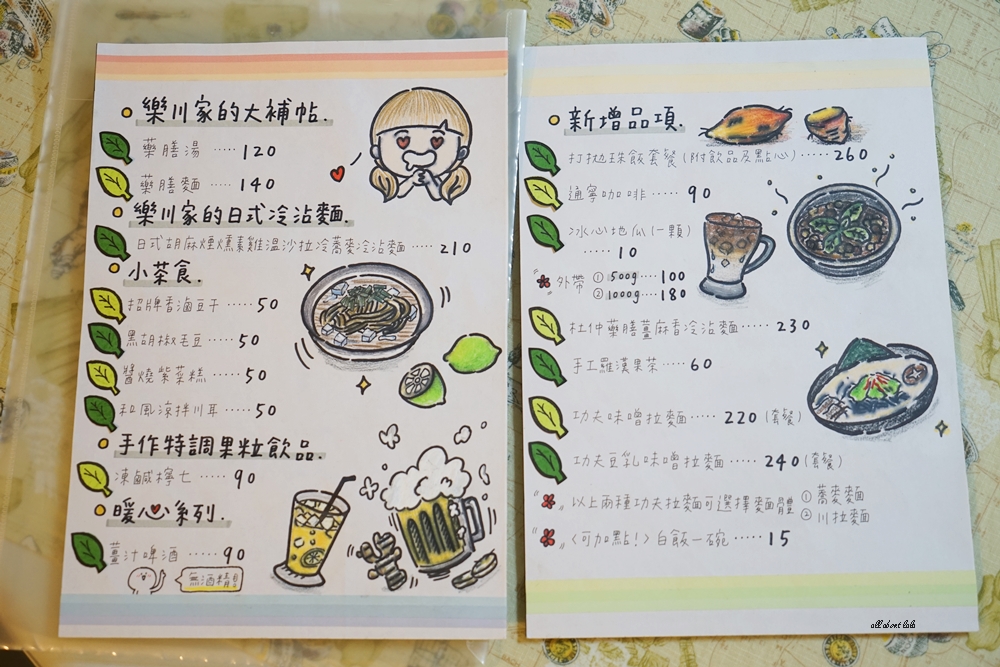 樂川家的大補帖.
藥膳湯 ····· 120
藥膳麵 ····· 140
樂川家的日式冷沾麵.
日式胡麻煙燻素雞溫沙拉冷蕎麥冷沾麵 ····· 210
小菜食.
招牌香滷豆干 ····· 50
黑胡椒毛豆 ····· 50
醬燒紫菜糕 ····· 50
和風涼拌川耳 ····· 50
手作特調果粒飲品.
凍鹹檸七 ····· 90
暖心系列.
薑汁啤酒 ····· 90
無酒精
新增品項.
打拋珠飯套餐(附飲品及點心) ····· 260
通寧咖啡 ····· 90
冰心地瓜(一顆)
····· 10
外帶 ① 500g ···· 100
② 1000g ···· 180
杜仲藥膳薑麻香冷沾麵 ····· 230
手工羅漢果茶 ····· 60
功夫味噌拉麵 ····· 220 (套餐)
功夫豆乳味噌拉麵 ····· 240 (套餐)
以上兩種功夫拉麵可選擇麵體 ① 蕎麥麵
② 川拉麵
〈可加點!〉白飯一碗 ····· 15
all about lulu